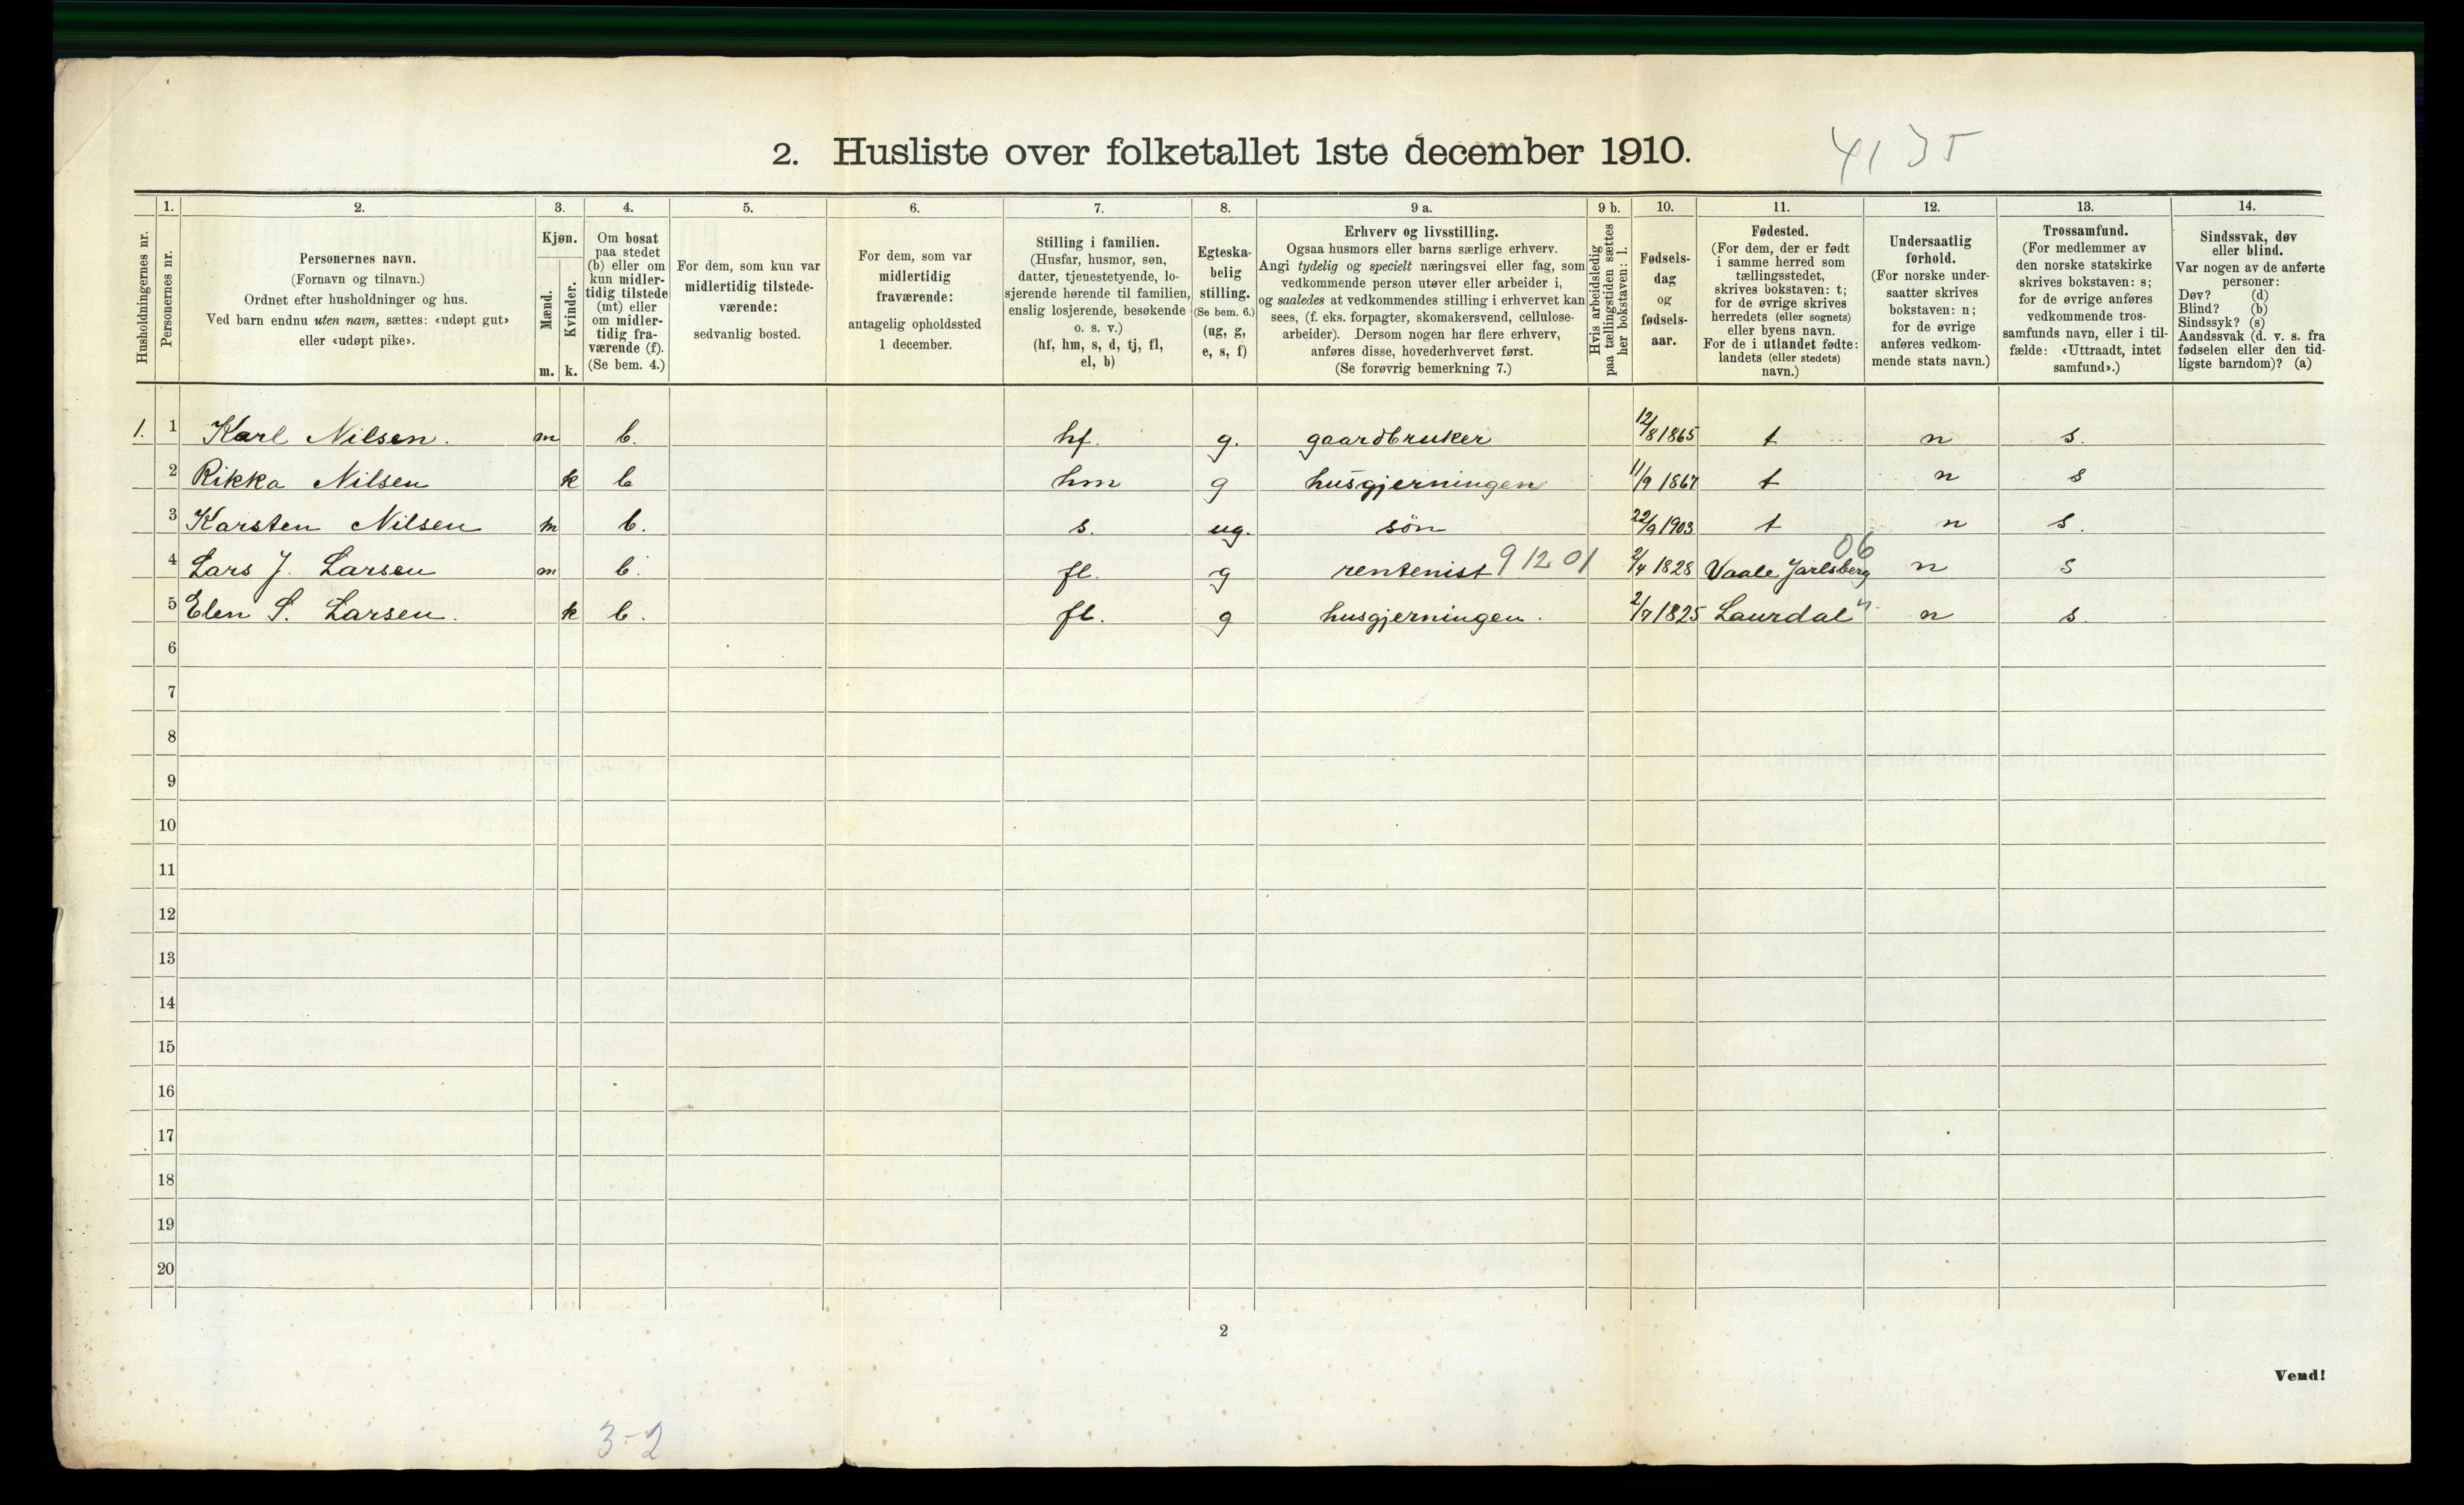 2. Husliste over folketallet 1ste december 1910.
4135
Husholdningernes nr.
1.
Personernes nr.
2.
Personernes navn.
(Fornavn og tilnavn.)
Ordnet efter husholdninger og hus.
Ved barn endnu uten navn, sættes: «udøpt gut»
eller «udøpt pike».
3.
Kjøn.
Mænd.
Kvinder.
m. k.
4.
Om bosat
paa stedet
(b) eller om
kun midler-
tidig tilstede
(mt) eller
om midler-
tidig fra-
værende (f).
(Se bem. 4.)
5.
For dem, som kun var
midlertidig tilstede-
værende:
sedvanlig bosted.
6.
For dem, som var
midlertidig
fraværende:
antagelig opholdssted
1 december.
7.
Stilling i familien.
(Husfar, husmor, søn,
datter, tjenestetyende, lo-
sjerende hørende til familien,
enslig losjerende, besøkende
o. s. v.)
(hf, hm, s, d, tj, fl,
el, b)
8.
Egteska-
belig
stilling.
(Se bem. 6.)
(ug, g,
e, s, f)
9 a.
Erhverv og livsstilling.
Ogsaa husmors eller barns særlige erhverv.
Angi tydelig og specielt næringsvei eller fag, som
vedkommende person utøver eller arbeider i,
og saaledes at vedkommendes stilling i erhvervet kan
sees, (f. eks. forpagter, skomakersvend, cellulose-
arbeider). Dersom nogen har flere erhverv,
anføres disse, hovederhvervet først.
(Se forøvrig bemerkning 7.)
9 b.
Hvis arbeidsledig
paa tællingstiden sættes
her bokstaven: l.
10.
Fødsels-
dag
og
fødsels-
aar.
11.
Fødested.
(For dem, der er født
i samme herred som
tællingsstedet,
skrives bokstaven: t;
for de øvrige skrives
herredets (eller sognets)
eller byens navn.
For de i utlandet fødte:
landets (eller stedets)
navn.)
12.
Undersaatlig
forhold.
(For norske under-
saatter skrives
bokstaven: n;
for de øvrige
anføres vedkom-
mende stats navn.)
13.
Trossamfund.
(For medlemmer av
den norske statskirke
skrives bokstaven: s;
for de øvrige anføres
vedkommende tros-
samfunds navn, eller i til-
fælde: «Uttraadt, intet
samfund».)
14.
Sindssvak, døv
eller blind.
Var nogen av de anførte
personer:
Døv? (d)
Blind? (b)
Sindssyk? (s)
Aandssvak (d. v. s. fra
fødselen eller den tid-
ligste barndom)? (a)
1. 1 Karl Nilsen. m b. hf. g. gaardbruker 12/8 1865 t n s.
2 Rikka Nilsen k b hm g husgjerningen 11/9 1867 t n s
3 Karsten Nilsen m b. s. ug. søn 22/9 1903 t n s.
4 Lars J. Larsen m b. fl. g rentenist 91201 2/4 1828 Vaale Jarlsberg 06 n s
5 Elen S. Larsen. k b. fl. g husgjerningen. 2/7 1825 Laurdal " n s.
6
7
8
9
10
11
12
13
14
15
16
17
18
19
20
2
Vend!
3-2